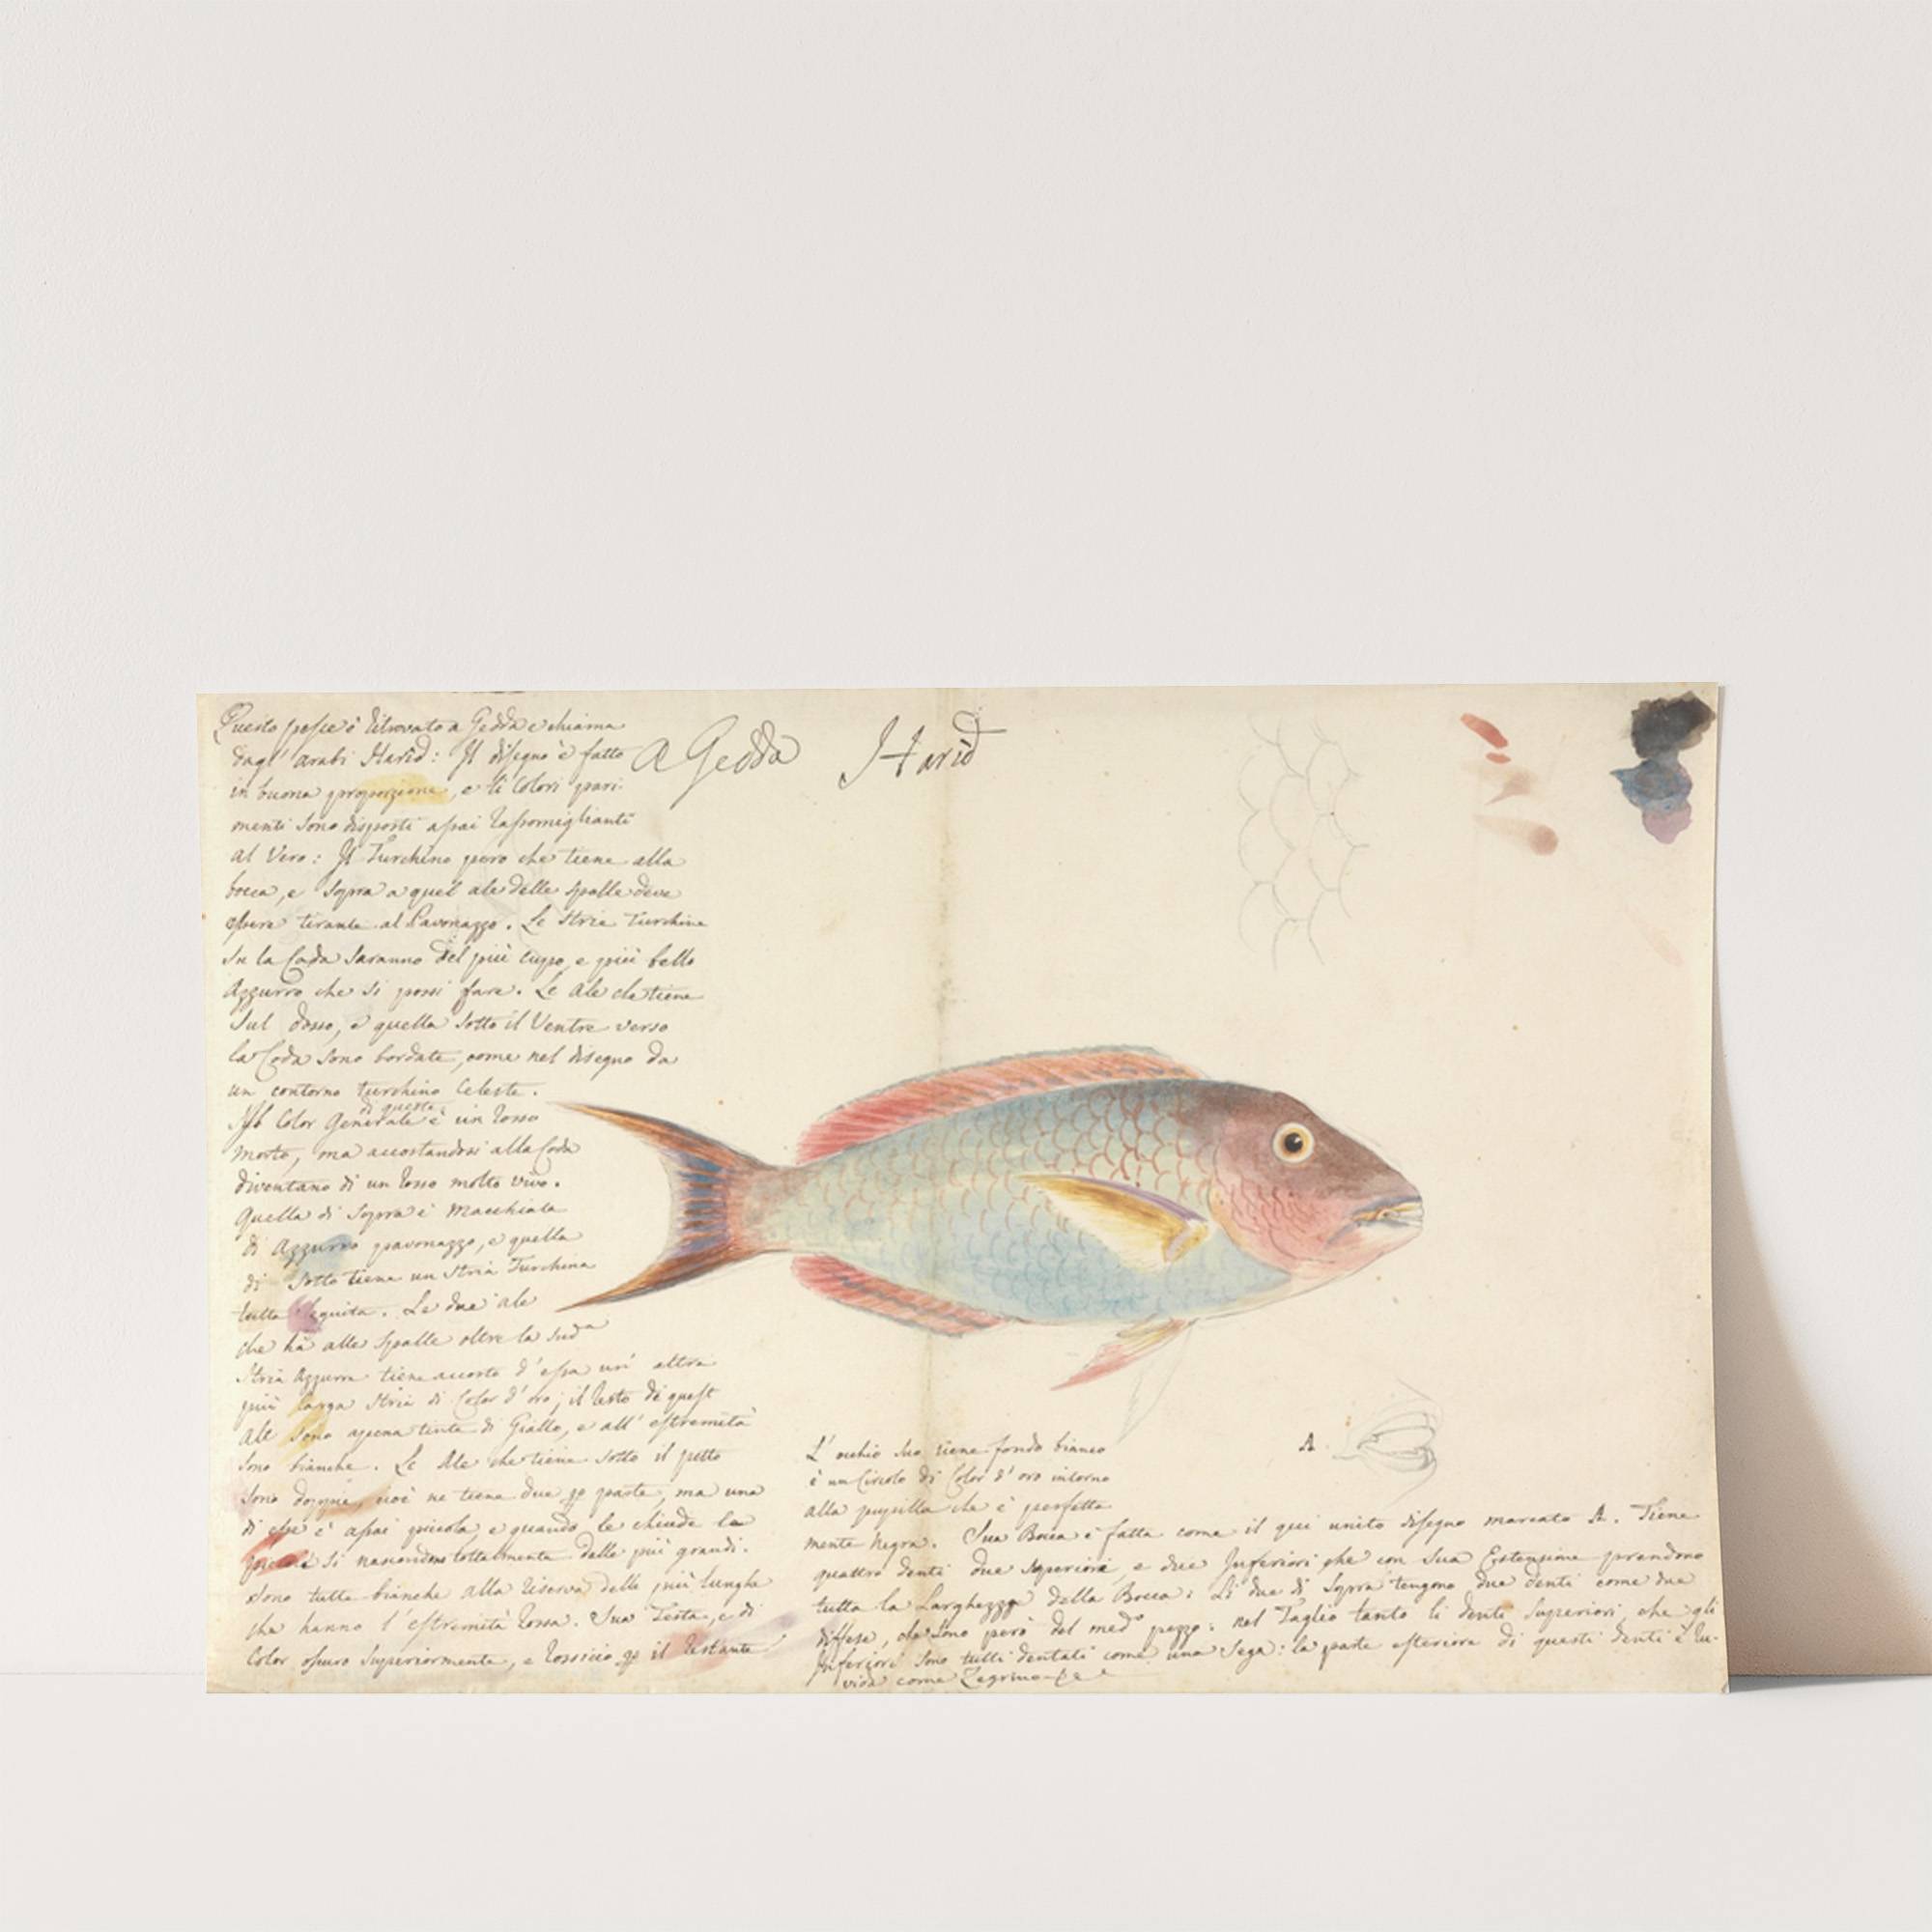 Questo pesce è ritrovato a Gedda e chiama
dagl' arabi Harid: Il disegno è fatto
in buona proporzione, e li Colori pari
menti sono disposti assai rassomiglianti
al Vero: Il Turchino pero che tiene alla
bocca, e sopra a quel ale delle spalle deve
essere tirante al Pavonazzo. Le strie Turchine
In la Coda saranno del più cupo, e più bello
Azzurro che si possi fare. Le Ale che tiene
sul dosso, e quella sotto il Ventre verso
la Coda sono bordate, come nel disegno da
un contorno turchino Celeste.
di queste
Il Color Generale è un rosso
morto, ma accostandosi alla Coda
diventano di un rosso molto vivo.
Quella di sopra è Macchiata
di Azzurro pavonazzo, e quella
di sotto tiene un stria Turchina
tutta seguita. Le due ale
che ha alle spalle oltre la sudᵃ
Stria Azzurra tiene accosto d'essa un' altra
più larga stria di Color d'oro; il resto di quest
Ale sono apena tinte di Giallo, e all' estremità
sono bianche. Le Ale che tiene sotto il petto
sono doppie, cioè ne tiene due p parte, ma una
di esse è assai piccola, e quando le chiude la
piccola si nascondono totalmente delle più grandi.
Sono tutte bianche alla riserva delle più lunghe
che hanno l'estremità rossa. Sua Testa, e di
Color osuro superiormente, e rossicio p il restante
A Gedda Harid
A
L' occhio suo tiene fondo bianco
è un Circolo di Color d'oro intorno
alla pupilla che è perfetta
mente Negra. Sua Bocca è fatta come il qui unito disegno marcato A. Tiene
quattro denti due superiori, e due Inferiori che con sua Estensione prendono
tutta la Larghezza della Bocca: Li due di Sopra tengono due denti come due
diffese, che sono però del medᵒ pezzo: nel Taglio tanto li denti superiori, che gli
Inferiori sono tutti dentati come una Sega: la parte esteriore di questi denti è ru-
vida come Zegrino